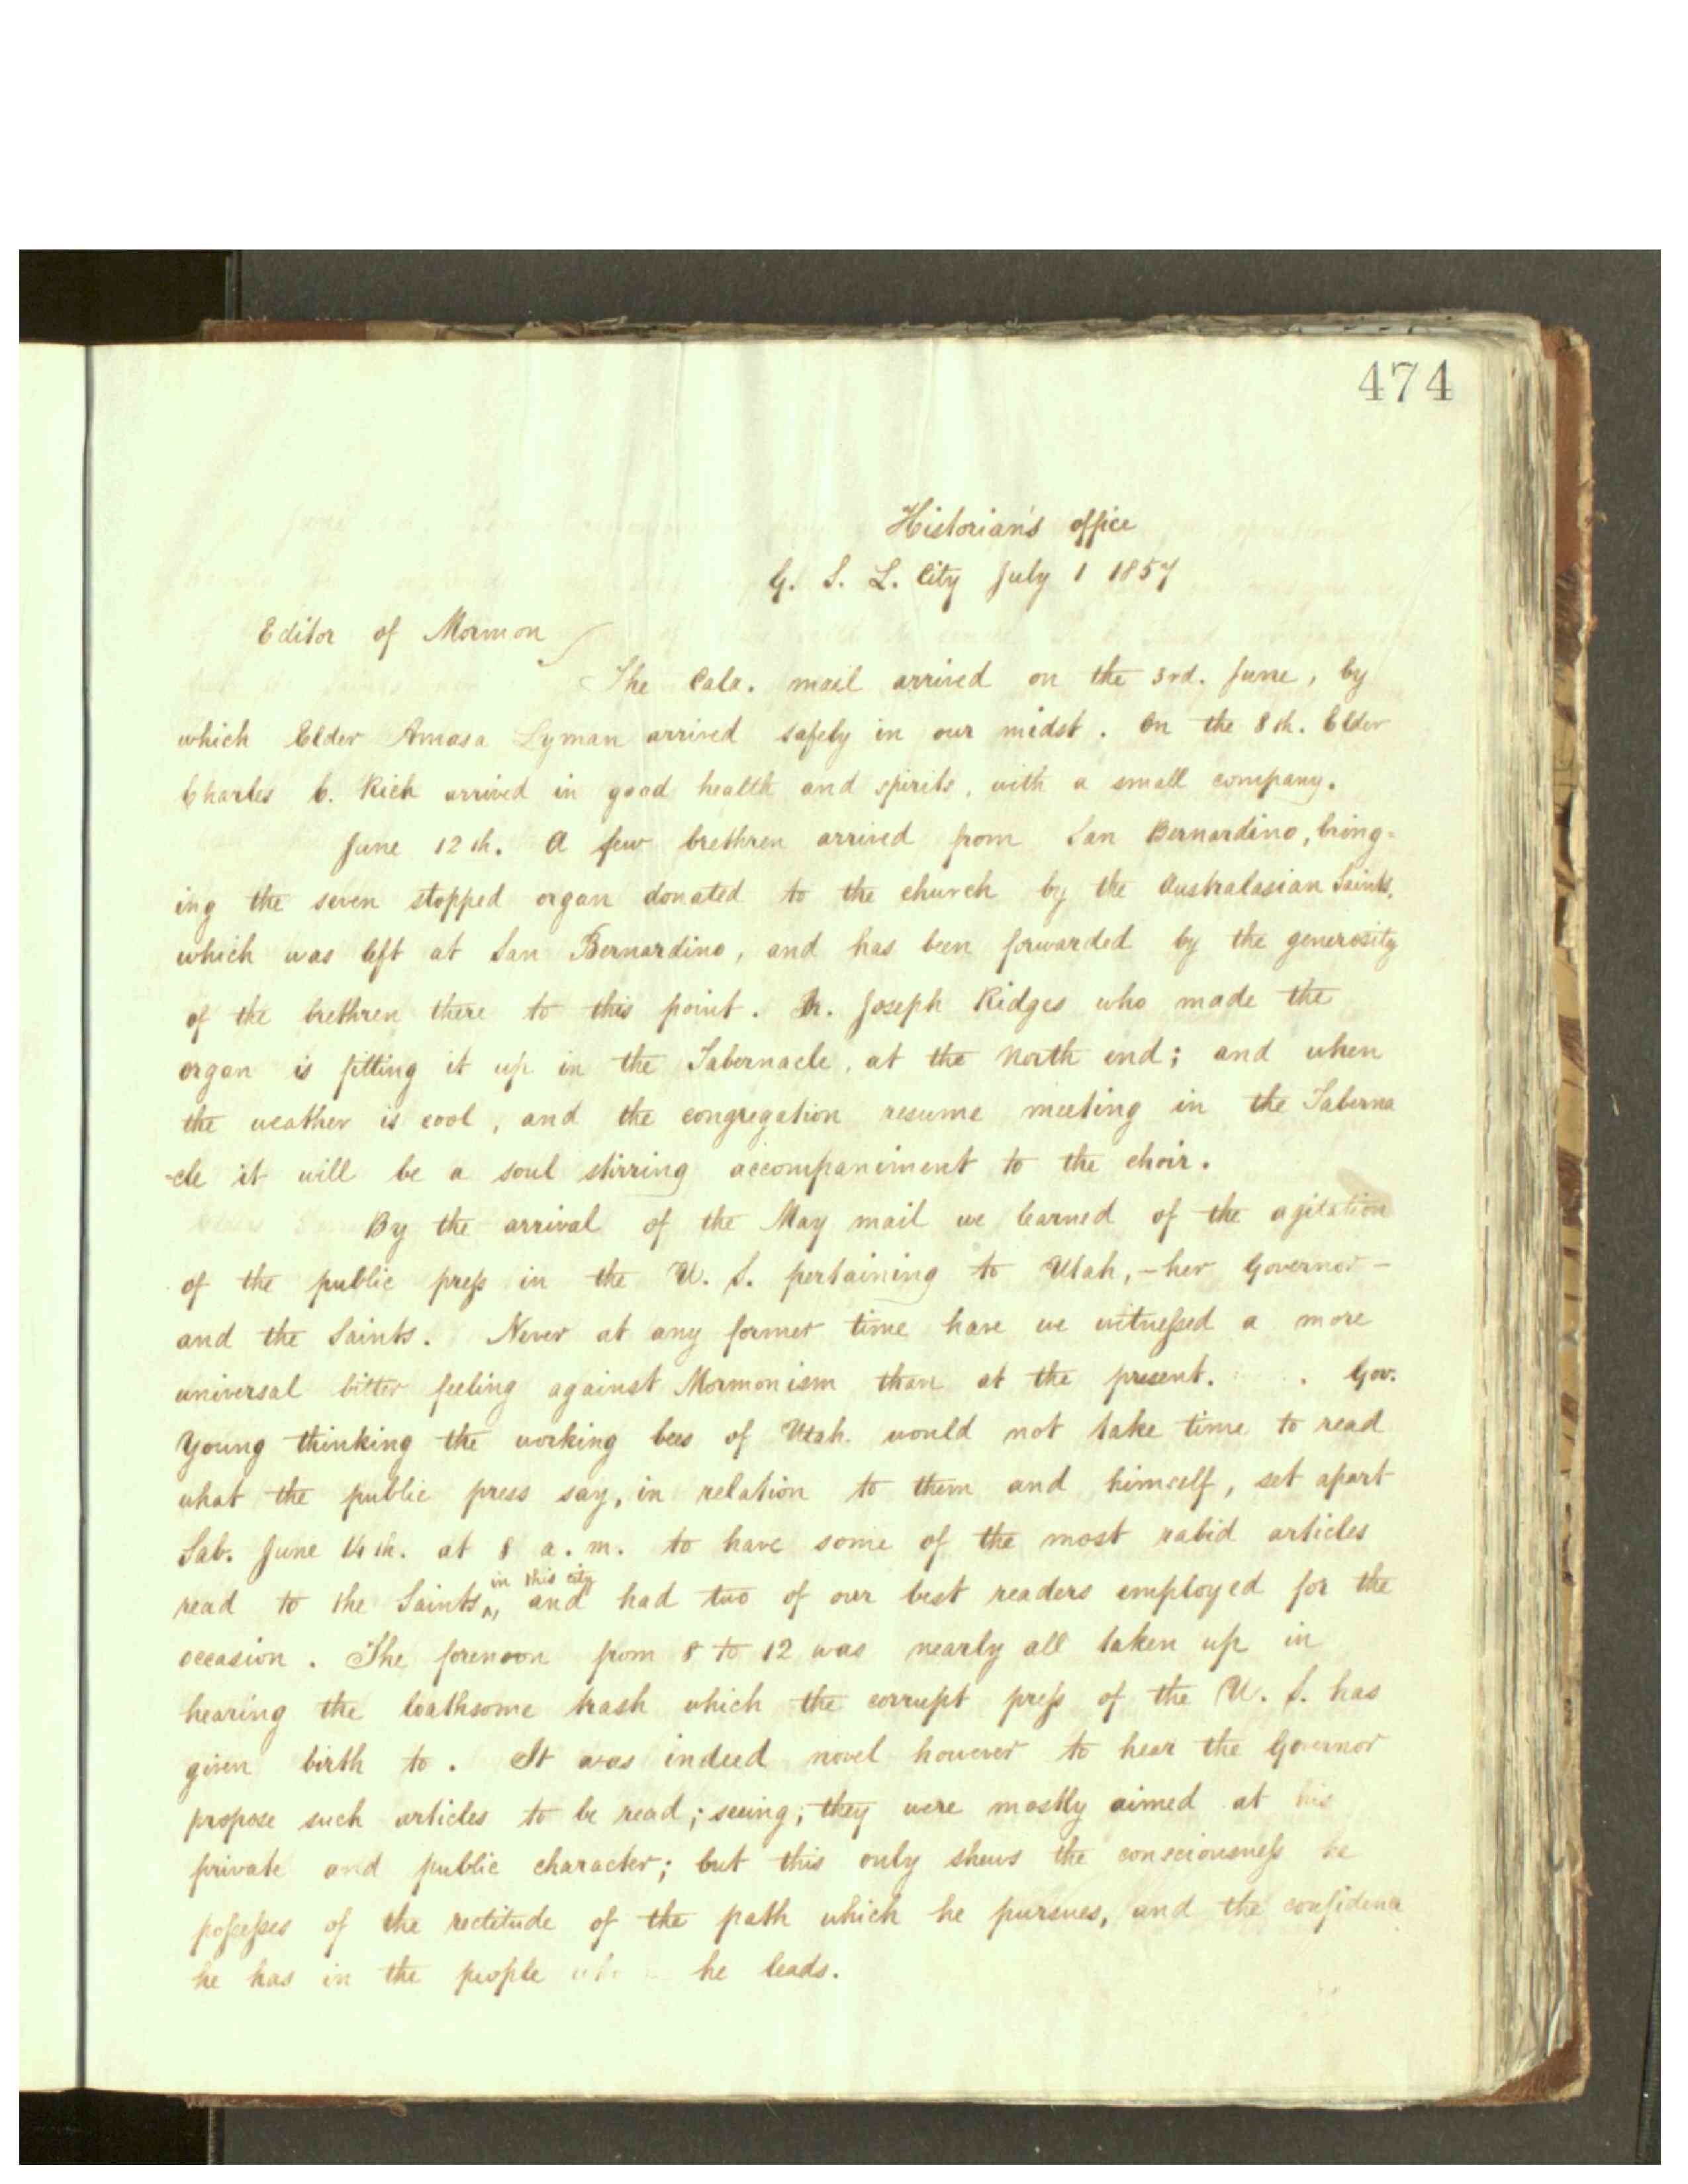 474
Historian's office
G. S. L. City July 1 1857
Editor of Mormon
The Cala. mail arrived on the 3rd. June, by
which Elder Amasa Lyman arrived safely in our midst. On the 8th. Elder
Charles C. Rich arrived in good health and spirits, with a small company.
June 12th. A few brethren arrived from San Bernardino, bring=
ing the seven stopped organ donated to the church by the Australasian Saints,
which was left at San Bernardino, and has been forwarded by the generosity
of the brethren there to this point. Br. Joseph Ridges who made the
organ is fitting it up in the Tabernacle, at the North end; and when
the weather is cool, and the congregation resume meeting in the Taberna
-cle it will be a soul stirring accompaniment to the choir.
By the arrival of the May mail we learned of the agitation
of the public press in the U. S. pertaining to Utah, - her Governor -
and the Saints. Never at any former time have we witnessed a more
universal bitter feeling against Mormonism than at the present. . Gov.
Young thinking the working bees of Utah would not take time to read
what the public press say, in relation to them and himself, set apart
Sab. June 14th. at 8 a. m. to have some of the most rabid articles
read to the Saints ^ in this city, and had two of our best readers employed for the
occasion. The forenoon from 8 to 12 was nearly all taken up in
hearing the loathsome trash which the corrupt press of the U. S. has
given birth to. It was indeed novel however to hear the Governor
propose such articles to be read; seeing; they were mostly aimed at his
private and public character; but this only shews the consciousness he
possesses of the rectitude of the path which he pursues, and the confidence
he has in the people he leads.